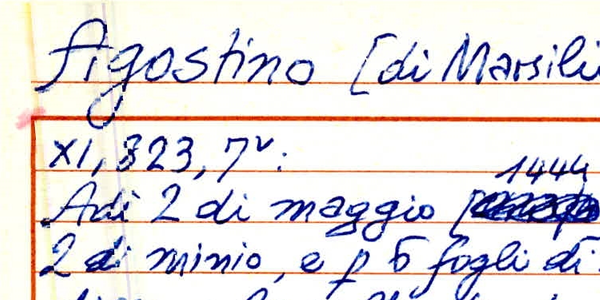 Agostino [di Marsili
XI, 323, 7v:
1444
Adi 2 di maggio [
2 di minio, e p 6 fogli di